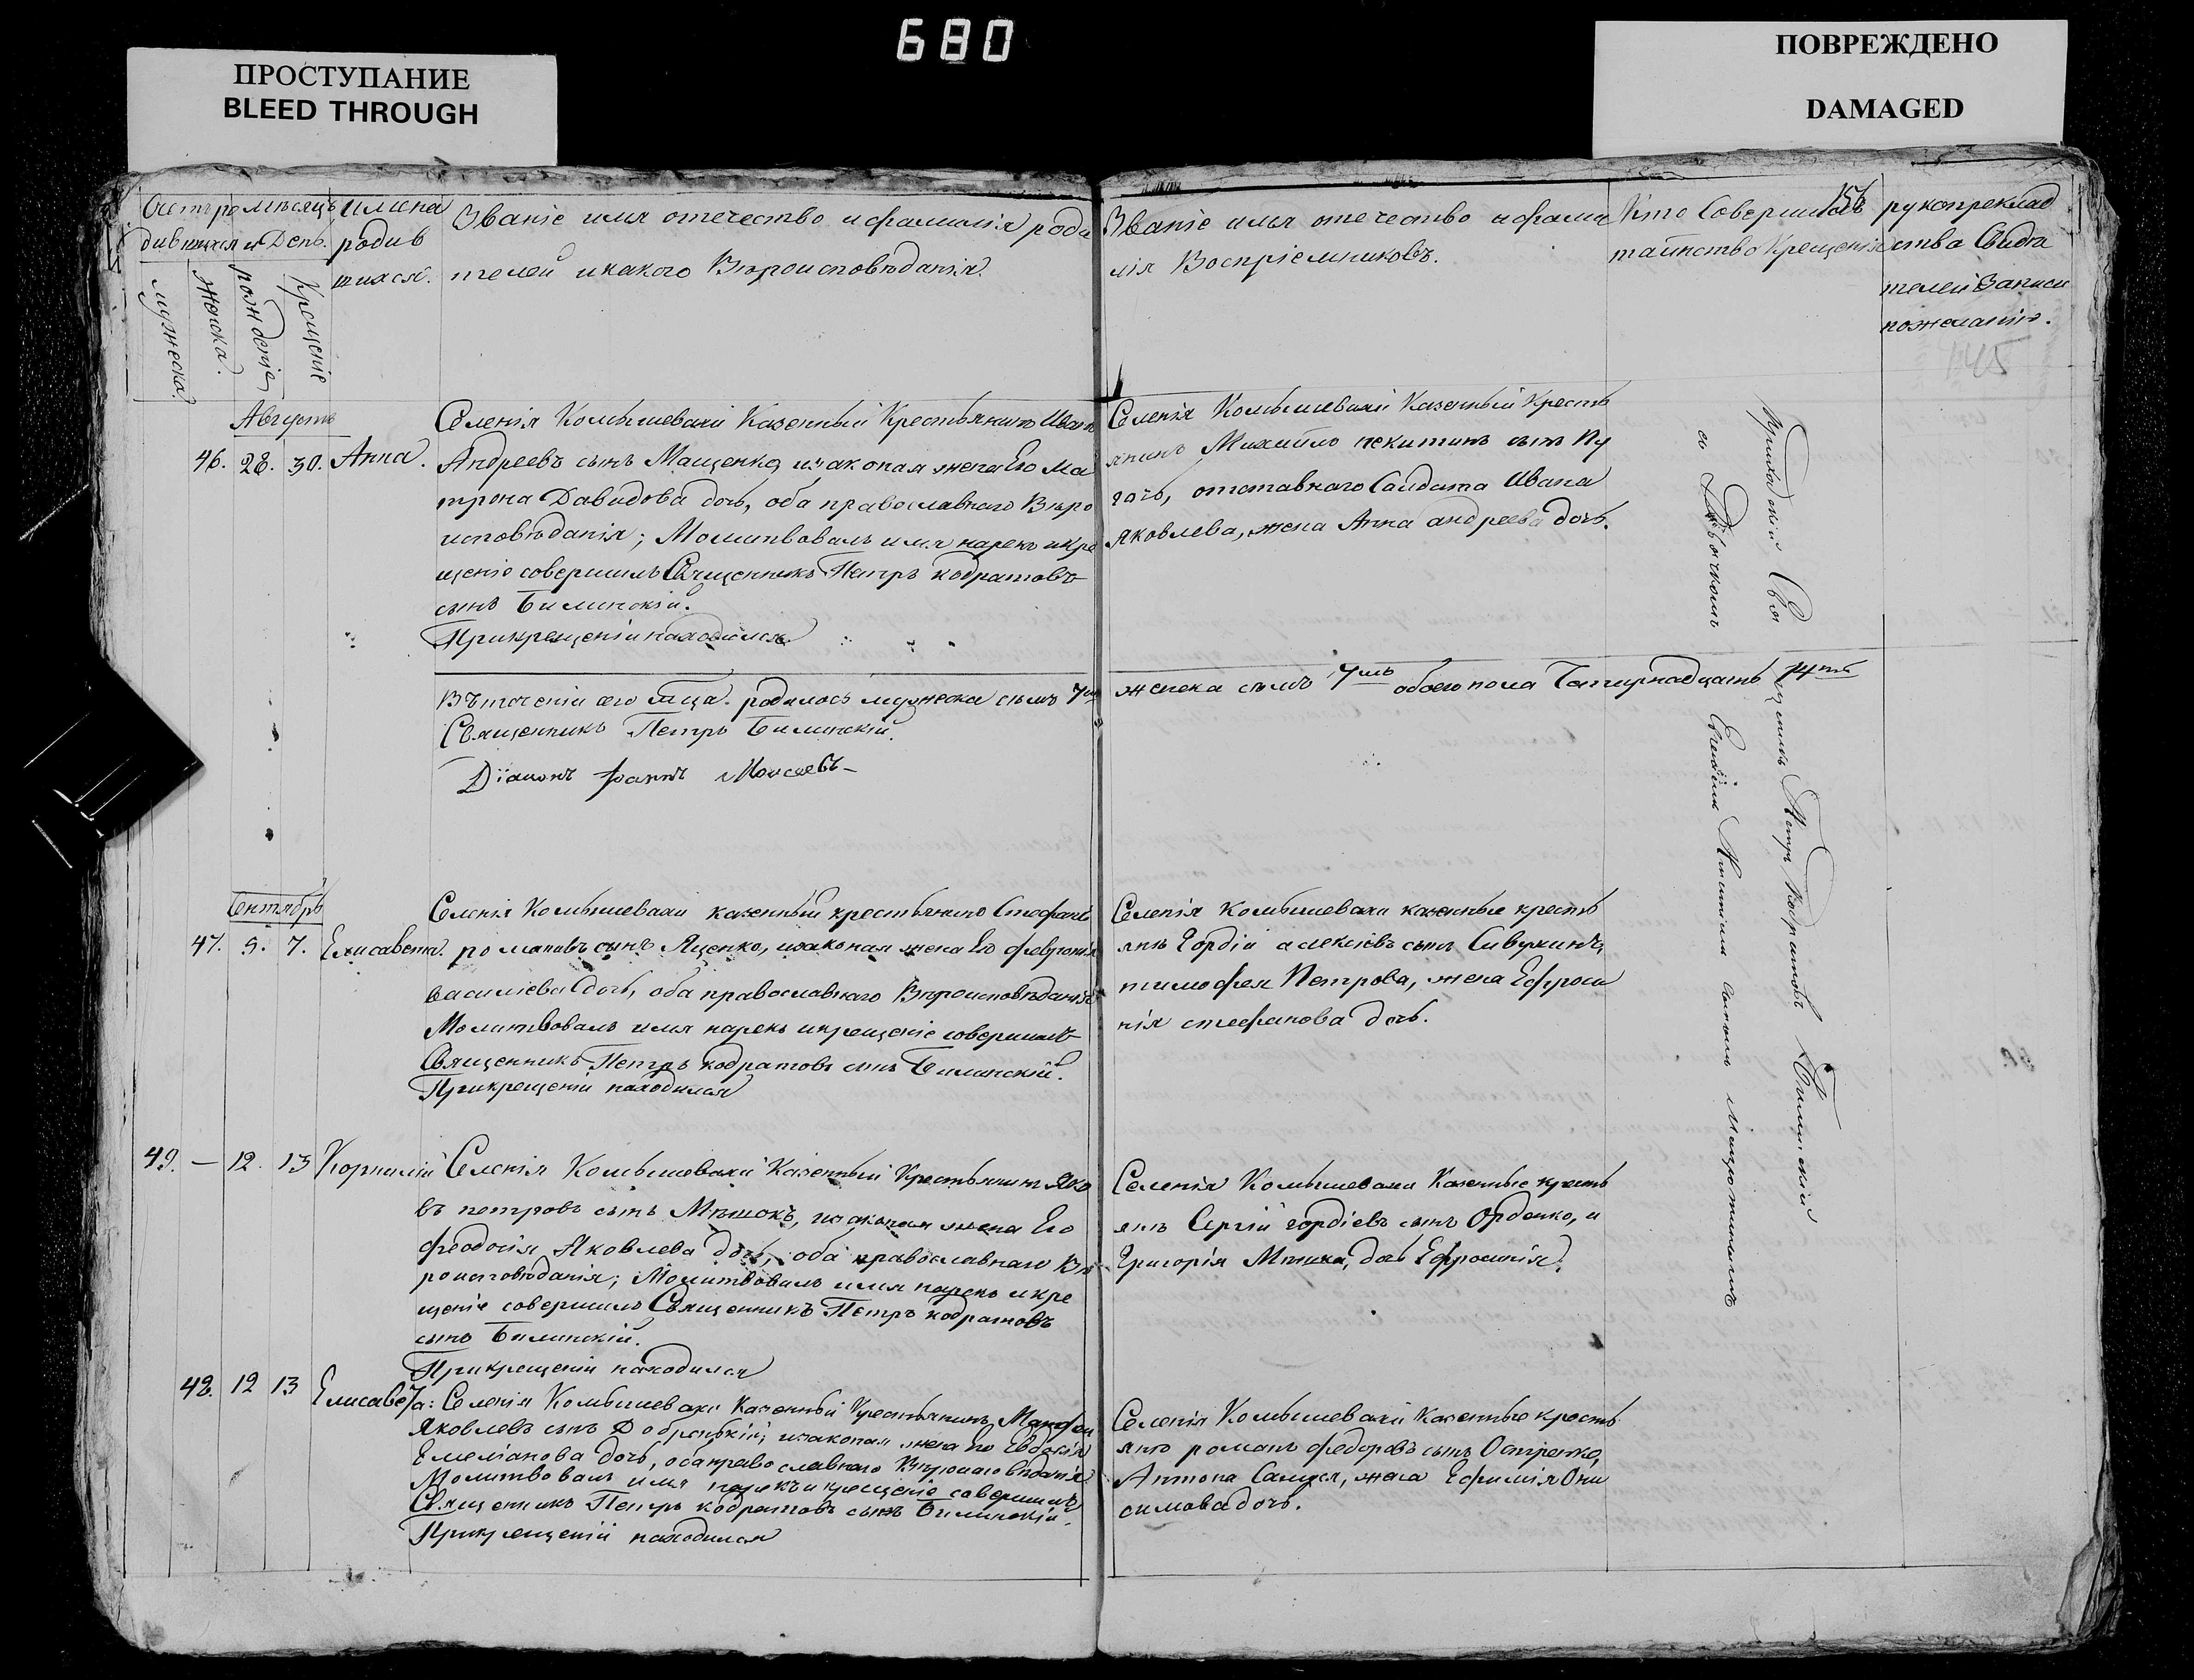 680
ПРОСТУПАНИЕ
BLEED THROUGH
ПОВРЕЖДЕНО
DAMAGED
Счетъ родившихся
Мѣсяцъ и День
мужеска.
Женска.
рожденіе
Крещеніе
имена
родив
шихся.
Званіе имя отечество и фамилія роди
телей и какого Вѣроисповѣданія.
Званіе имя отечество и фами
лія Воспріемниковъ.
Кто Совершилъ
таинство Крещенія
рукопреклад
ства Свидѣ
телей Записи
по желанію.
145
Августъ
46. 28. 30. Анна.
Селенія Комышевахи Казенный Крестьянинъ Иванъ
Андреевъ сынъ Мащенко, и законая жена Его Ма
трона Давидова дочь, оба православнаго Вѣро
исповѣданія; Молитвовалъ имя нарекъ и кре
щеніе совершилъ Священникъ Петръ кодратовъ
сынъ Билинскій.
При крещеніи находился
Селенія Комышевахи Казенный Кресть
янинъ Михайло никитинъ сынъ Пу
гачь, отставнаго Салдата Ивана
Яковлева, жена Анна андреева дочь.
Въ теченіи сего мѣсяца родилось мужеска семъ 7мъ
женска семъ 7мъ обоего пола Четырнадцать 14ть
Священникъ Петръ Билинскій.
Діаконъ Іоаннъ Моисеевъ
Сентябрь
47. 5. 7. Елисавета.
Селенія Комышевахи казенный крестьянинъ Стефанъ
романовъ сынъ Яценко, и законая жена Его феврония
василіева дочь, оба православнаго Вѣроисповѣданія
Молитвовалъ имя нарекъ и крещеніе совершилъ
Священникъ Петръ кодратовъ сынъ Билинскій.
При крещеніи находился
Селенія Комышевахи казенные кресть
янъ Гордій алексіевъ сынъ
тимофея Петрова, жена Ефроси
нія стефанова дочь.
49. — 12. 13 Корнилій
Селенія Комышевахи Казенный Крестьянинъ Яко
въ петровъ сынъ Мѣшокъ, и законая жена Его
феодосія Яковлева дочь, оба православнаго Вѣ
роисповѣданія; Молитвовалъ имя нарекъ и кре
щеніе совершилъ Священникъ Петръ кодратовъ
сынъ Билинскій.
При крещеніи находился
Селенія Комышевахи Казенные кресть
янъ Сергій гордіевъ сынъ Орденко, и
Григорія Мѣшка, дочь Ефросинія.
48. 12 13 Елисавета:
Селенія Комышевахи Казенный Крестьянинъ
Яковлевъ сынъ и законая жена Его Евдокія
Емеліанова дочь, оба православнаго Вѣроисповѣданія
Молитвовалъ имя нарекъ и крещеніе совершилъ
Священникъ Петръ кодратовъ сынъ Билинскій.
При крещеніи находился
Селенія Комышевахи Казенные кресть
янъ романъ федоровъ сынъ
Антона жена Ефимія Они
симова дочь.
Приходскій Священникъ Петръ Кодратовъ Билинскій